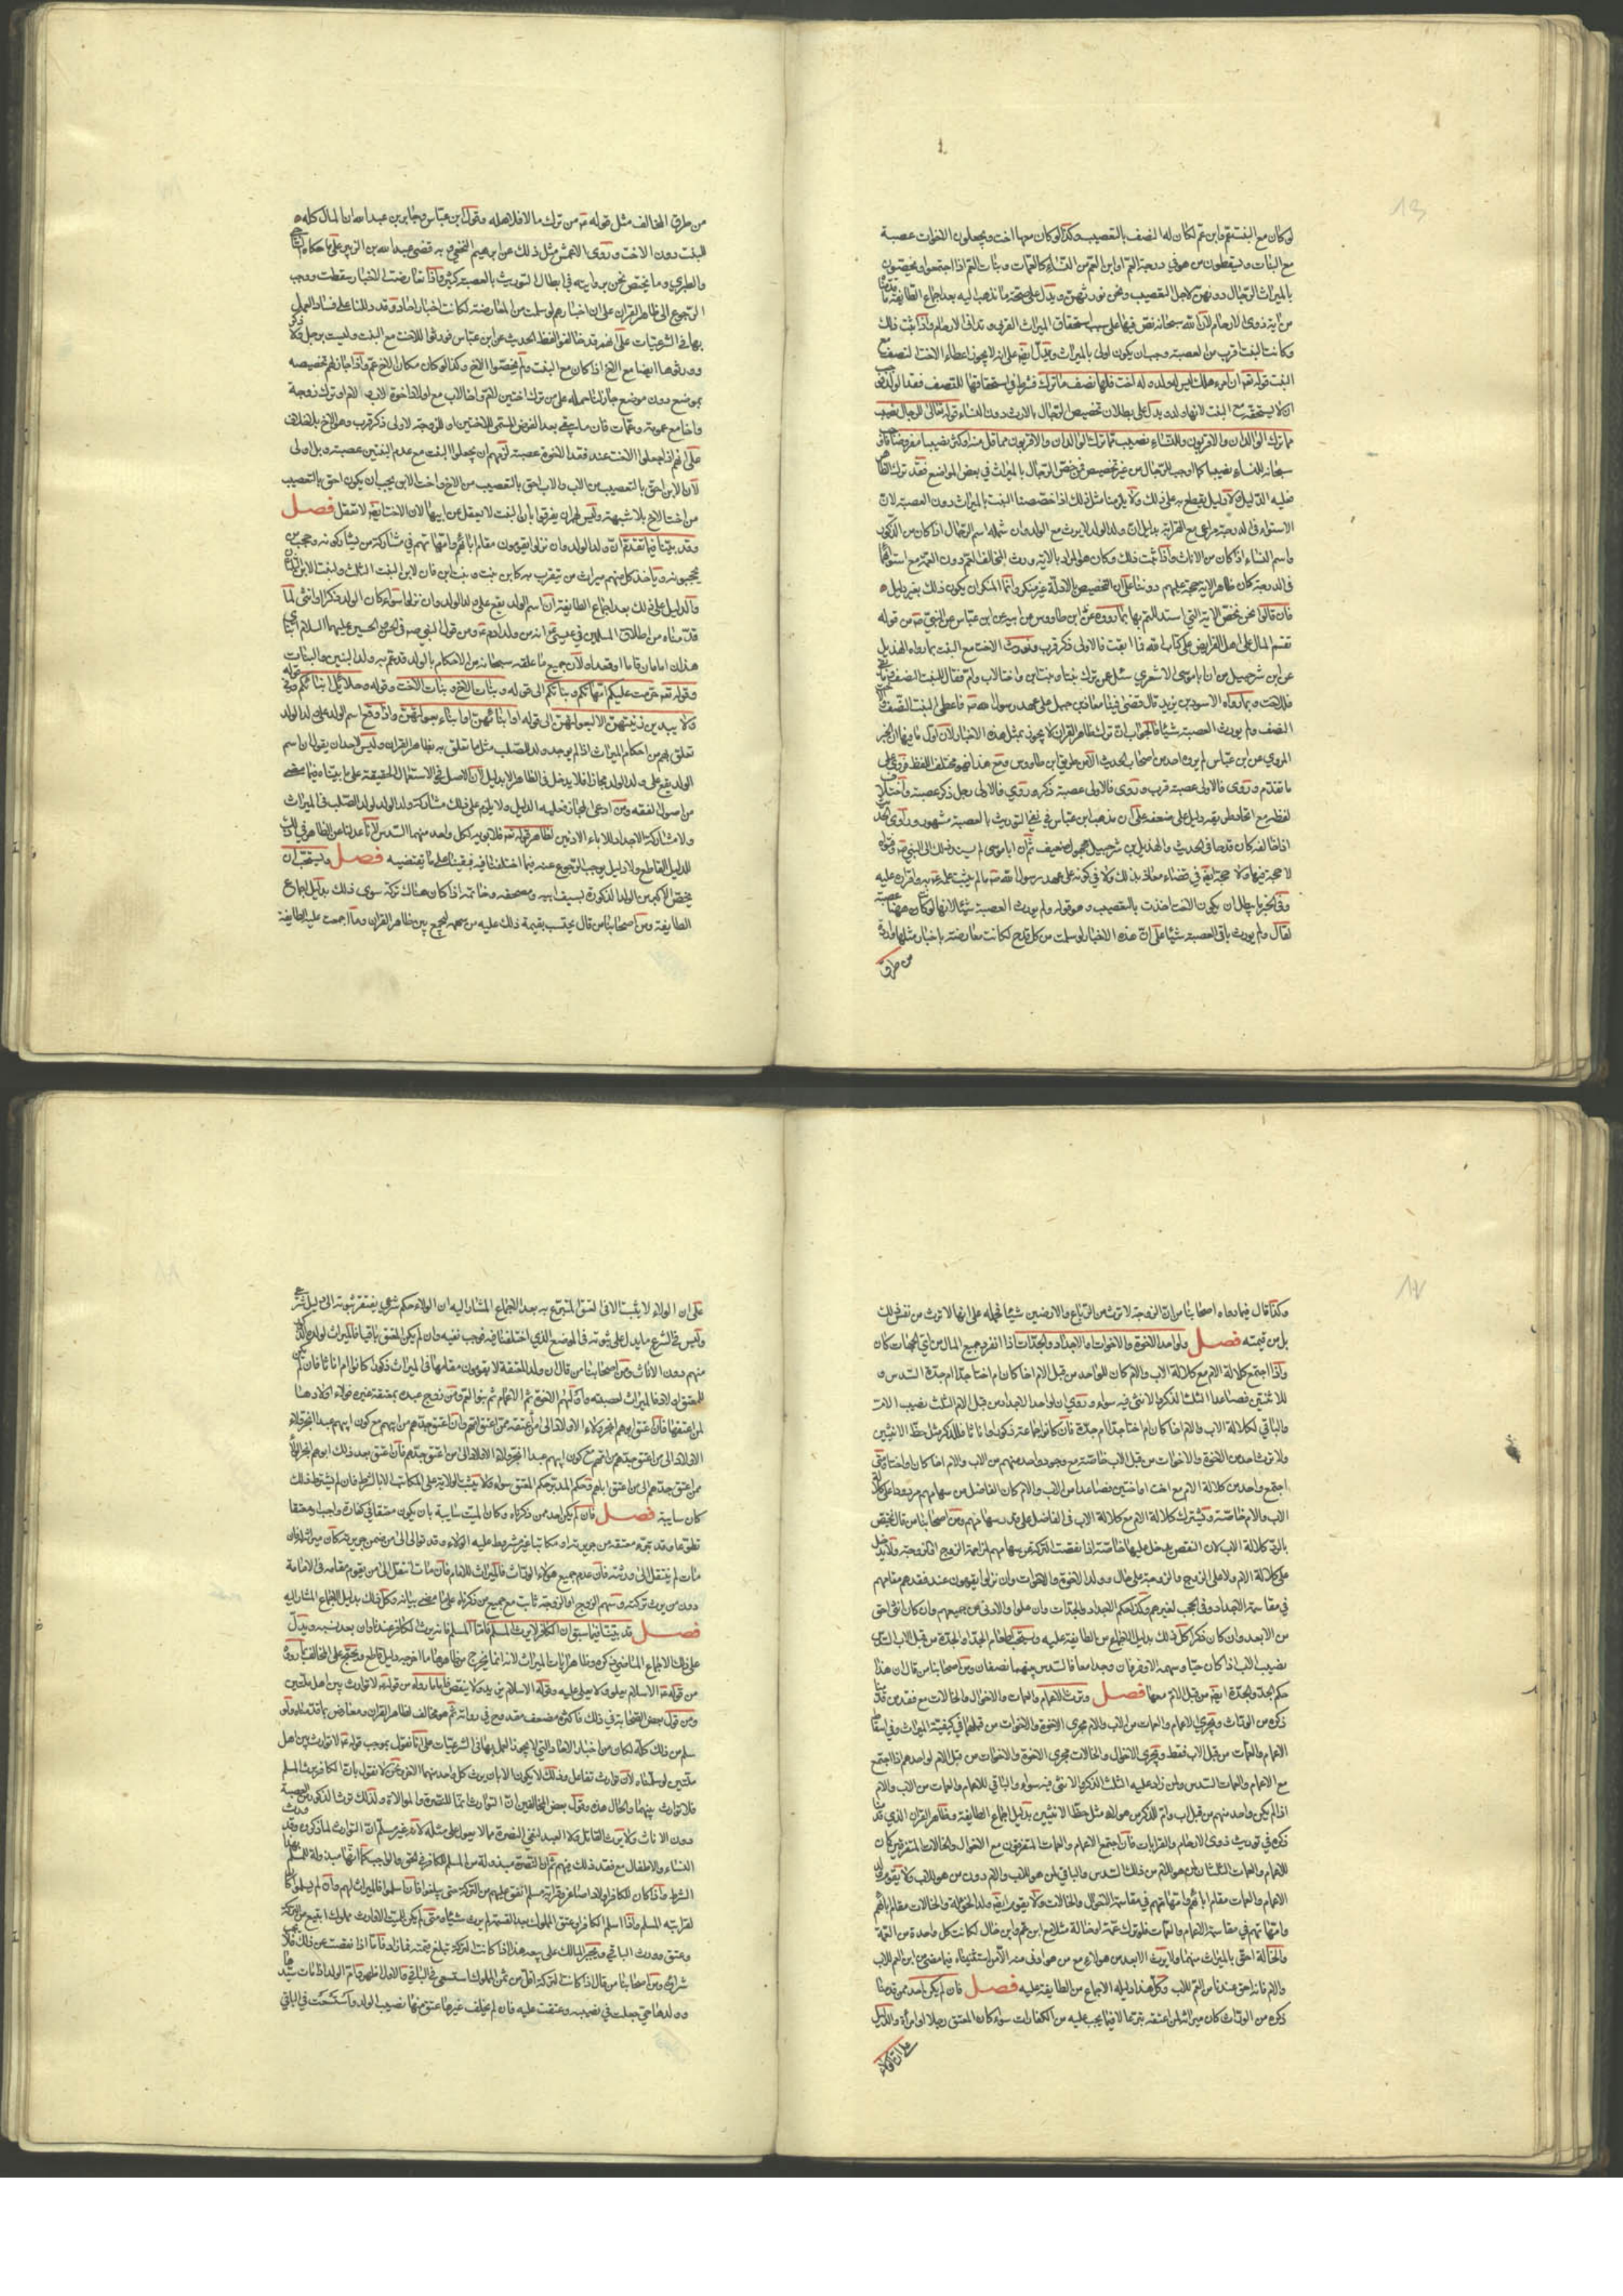 لو كان مع البنت عم وابن عم لكان له النصف بالتعصيب وكذا لو كان معها اخت ويجعلون الاخوات عصبة
مع البنات ويسقطون من هو في درجة العم او ابن العم من النساء كالعمات وبنات العم اذا اجتمعوا ويخصون
بالميراث الرجال دونهن لاجل التعصيب ونحن نورثهن ويدل على صحة ما نذهب اليه بعد اجماع الطائفة ما قدمناه
من آية ذوى الارحام لان الله سبحانه نص فيها على سبب استحقاق الميراث القربى وتدانى الارحام واذا ثبت ذلك
وكانت البنت اقرب من العصبة وجب ان يكون اولى بالميراث ويدل ايضا على انه لا يجوز اعطاء الاخت النصف مع
البنت قوله تعالى ان امرء هلك ليس له ولد وله اخت فلها نصف ما ترك فشرط في استحقاقها للنصف فقد الولد فوجب
ان لا يستحقه مع البنت لانها ولد ويدل على بطلان تخصيص الرجال بالارث دون النساء قوله تعالى للرجال نصيب
مما ترك الوالدان والاقربون وللنساء نصيب مما ترك الوالدان والاقربون مما قل منه او كثر نصيبا مفروضا فاوجب
سبحانه للنساء نصيبا كما اوجب للرجال من غير تخصيص فمن خص الرجال بالميراث في بعض المواضع فقد ترك الظاهر
فعليه الدليل ولا دليل يقطع به على ذلك ولا يلزمنا مثل ذلك اذا خصصنا البنت بالميراث دون العصبة لان
الاستواء فى الدرجة مراعى مع القرابة بدليل ان ولد الولد لا يرث مع الولد وان شمله اسم الرجال اذا كان من الذكور
واسم النساء اذا كان من الاناث واذا ثبت ذلك وكان هو المراد بالاية وورث المخالف العم دون العمة مع استوائهما
فى الدرجة كان ظاهر الاية حجة عليهم دوننا على ان التخصيص بالادلة غير منكر وانما المنكر ان يكون ذلك بغير دليل
فان قالوا نحن نخص الاية التي استدللتم بها بما رووه عن ابن طاووس عن ابيه عن ابن عباس عن النبي صلى من قوله
تقسم المال على اهل الفرايض على كتاب الله فما ابقت فلاولى ذكر قرب ونورث الاخت مع البنت بما رواه الهذيل
عن ابن شرحبيل من ان ابا موسى الاشعري سئل عمن ترك بنتا وبنت ابن واختا لاب وام فقال للبنت النصف وما بقي
فللاخت وبما رواه الاسود بن يزيد قال قضى فينا معاذ بن جبل على عهد رسول الله فاعطى البنت النصف والاخت
النصف ولم يورث العصبة شيئا فالجواب ان ترك ظاهر القرآن لا يجوز بمثل هذه الاخبار لان اول ما فيها ان الخبر
المروي عن ابن عباس لم يروه احد من اصحاب الحديث الا من طريق ابن طاووس ومع هذا فهو مختلف اللفظ فروي على
ما تقدم وروى فلاولى عصبة قرب وروى فلاولى عصبة ذكر وروي فلاولى رجل ذكر عصبة واختلاف
لفظه مع اتحاد طريقه دليل على ضعفه على ان مذهب ابن عباس في نفي التوريث بالعصبة مشهور وراوي الحديث
اذا خالفه كان قدحا فى الحديث والهذيل بن شرحبيل مجهول ضعيف ثم ان ابا موسى لم يسند ذلك الى النبي وفتواه
لا حجة فيها ولا حجة ايضا في قضاء معاذ بذلك ولا في كونه على عهد رسول الله ما لم يثبت علمه به واقراره عليه
وفى الخبر ما يبطل ان يكون الاخت اخذت بالتعصيب وهو قوله ولم يورث العصبة شيئا لانها لو كانت هيهنا عصبة
لقال ولم يورث باقى العصبة شيئا على ان هذه الاخبار لو سلمت من كل قدح لكانت معارضة باخبار مثلها واردة
من طرق
من طرق المخالف مثل قوله من ترك مالا فلاهله وقول ابن عباس وجابر بن عبد الله ان المال كله
للبنت دون الاخت وروى الاعمش مثل ذلك عن ابرهيم النخعي وبه قضى عبد الله بن الزبير على ما حكاه الساجي
والطبري وما يختص نحن بروايته في ابطال التوريث بالعصبة كثير واذا تعارضت الاخبار سقطت ووجب
الرجوع الى ظاهر القرآن على ان اخبارهم لو سلمت من المعارضة لكانت اخبار آحاد وقد دللنا على فساد العمل
بها فى الشرعيات على انهم قد خالفوا لفظ الحديث عن ابن عباس فورثوا الاخت مع البنت وليست برجل ولا ذكر
وورثوها ايضا مع الاخ اذا كان مع البنت ولم يخصوا الاخ وكذا لو كان مكان الاخ عم واذا جاز لهم تخصيصه
بموضع دون موضع جاز لنا حمله على من ترك اختين لام واخا لاب مع اولاد اخوة لاب لام او ترك زوجة
واخا مع عمومة وعمات فان ما يبقى بعد الفرض المسمى للاختين او للزوجة لاولى ذكر قرب وهو الاخ بلا خلاف
على انهم اذا جعلوا الاخت عند فقد الاخوة عصبة لزمهم ان يجعلوا البنت مع عدم البنين عصبة وبل اولى
لان الابن احق بالتعصيب من الاب والاب احق بالتعصيب من الاخ واخت الابن يجب ان يكون احق بالتعصيب
من اخت الاخ بلا شبهة وليس لهم ان يفرقوا بان البنت لا تعقل عن ابيها لان الاخت ايضا لا تعقل فصل
وقد بينا فيما تقدم ان ولد الولد وان نزلوا يقومون مقام ابائهم وامهاتهم في مشاركة من يشاركونه وحجب من
يحجبونه وياخذ كل منهم ميراث من يتقرب به كابن بنت وبنت ابن فان لابن البنت الثلث ولبنت الابن الثلثان
والدليل على ذلك بعد اجماع الطائفة ان اسم الولد يقع على ولد الولد وان نزلوا سواء كان الولد ذكرا او انثى لما
قدمناه من اطلاق المسلمين في عيسى انه من ولد آدم ومن قول النبي صلى في الحسن والحسين عليهما السلام ابناي
هذان امامان قاما او قعدا ولان جميع ما علقه سبحانه من الاحكام بالولد قد عم به ولد البنين والبنات
وقوله تعالى حرمت عليكم امهاتكم وبناتكم الى قوله وبنات الاخ وبنات الاخت وقوله وحلائل ابنائكم وفي قوله
ولا يبدين زينتهن الا لبعولتهن الى قوله او ابنائهن او ابناء بعولتهن واذا وقع اسم الولد على ولد الولد
تعلق بهم من احكام الميراث اذا لم يوجد ولد الصلب مثل ما تعلق به بظاهر القرآن وليس لاحد ان يقول ان اسم
الولد يقع على ولد الولد مجازا فلا يدخل في الظاهر الا بدليل لان الاصل فى الاستعمال الحقيقة على ما بيناه فيما مضى
من اصول الفقه ومن ادعى المجاز فعليه الدليل ولا يلزم على ذلك مشاركة ولد الولد لولد الصلب فى الميراث
ولا مشاركة الاجداد للاباء الادنين لظاهر قوله تعالى فلابويه لكل واحد منهما السدس لانا عدلنا عن الظاهر في ذلك
للدليل القاطع ولا دليل يوجب الرجوع عنه فيما اختلفنا فيه فبقينا على ما يقتضيه فصل ويستحب ان
يخص الاكبر من الولد الذكورة بسيف ابيه ومصحفه وخاتمه اذا كان هناك تركة سوى ذلك بدليل اجماع
الطائفة ومن اصحابنا من قال يحتسب بقيمة ذلك عليه من سهمه ليجمع بين ظاهر القرآن وما اجمعت عليه الطايفة
وكذا قال فيما رواه اصحابنا من ان الزوجة لا ترث من الرباع والارضين شيئا فحمله على انها لا ترث من نفس ذلك
بل من قيمته فصل ولواحد الاخوة والاخوات والاجداد والجدات اذا انفرد جميع المال من اي الجهات كان
واذا اجتمع كلالة الام مع كلالة الاب والام كان للواحد من قبل الام اخا كان ام اختا جدا ام جدة السدس و
للاثنين فصاعدا الثلث الذكر والانثى فيه سواء وروي ان لواحد الاجداد من قبل الام الثلث نصيب الام
والباقي لكلالة الاب والام اخا كان ام اختا جدا ام جدة فان كانوا جماعة ذكورا واناثا فللذكر مثل حظ الانثيين
ولا يرث احد من الاخوة والاخوات من قبل الاب خاصة مع وجود واحد منهم من الاب والام اخا كان او اختا ومتى
اجتمع واحد من كلالة الام مع اخت او اختين فصاعدا من الاب والام كان الفاضل من سهامهم مردودا على كلالة
الاب والام خاصة وتشترك كلالة الام مع كلالة الاب فى الفاضل على قدر سهامهم ومن اصحابنا من قال يختص
بالرد كلالة الاب لان النقص يدخل عليها خاصة اذا نقصت التركة عن سهامهم لمزاحمة الزوج او الزوجة ولا يدخل
على كلالة الام ولا على الزوج والزوجة على حال وولد الاخوة والاخوات وان نزلوا يقومون عند فقدهم مقامهم
في مقاسمة الاجداد وفى الحجب لغيرهم وكذا حكم الاجداد والجدات وان علوا والادنى من جميعهم وان كان انثى احق
من الابعد وان كان ذكرا كل ذلك بدليل الاجماع من الطايفة عليه ويستحب اطعام الجد والجدة من قبل الاب السدس من
نصيب الاب اذا كان حيا وسهمه الاوفر فان وجدا معا فالسدس بينهما نصفان ومن اصحابنا من قال ان هذا
حكم الجد والجدة ايضا من قبل الام معها فصل ويرث الاعمام والعمات والاخوال والخالات مع فقد من قدمنا
ذكره من الوراث ويجري الاعمام والعمات من الاب والام مجرى الاخوة والاخوات من قبلهما في كيفية الميراث وفي اسقاط
الاعمام والعمات من قبل الاب فقط ويجرى الاخوال والخالات مجرى الاخوة والاخوات من قبل الام لواحدهم اذا اجتمع
مع الاعمام والعمات السدس ولمن زاد عليه الثلث الذكر والانثى فيه سواء والباقي للاعمام والعمات من الاب والام
اذا لم يكن واحد منهم من قبل اب وام للذكر من هؤلاء مثل حظ الانثيين بدليل اجماع الطايفة وظاهر القران الذي قدمنا
ذكره في توريث ذوى الارحام والقرابات فان اجتمع الاعمام والعمات المتفرقون مع الاخوال والخالات المتفرقين كان
للاعمام والعمات الثلثان لمن هو للام من ذلك السدس والباقي لمن هو للاب والام دون من هو للاب ولا يقوم ولد
الاعمام والعمات مقام ابائهم وامهاتهم في مقاسمة الاخوال والخالات ولا يقوم ايضا ولد الخؤلة والخالات مقام بائهم
وامهاتهم في مقاسمة الاعمام والعمات فلو ترك عمة او خالة مثلا مع ابن عم وابن خال لكانت كل واحدة من العمة
والخالة احق بالميراث منهما ولا يرث الابعد من هؤلاء مع من هو ادنى منه الا من استثنيناه فيما مضى من ابن العم للاب
والام فانه احق عندنا من العم للاب وكل هذا دليله الاجماع من الطايفة عليه فصل فان لم يكن احد ممن قدمنا
ذكره من الوراث كان ميراثه لمن اعتقه تبرعا لا فيما يجب عليه من الكفارات سواء كان المعتق رجلا او امرأة والدليل
على ان الولاء
على ان الولاء لا يثبت الا في العتق المتبرع به بعد الاجماع المشار اليه ان الولاء حكم شرعي يفتقر ثبوته الى دليل شرعي
وليس في الشرع ما يدل على ثبوته فى الموضع الذي اختلفنا فيه فوجب نفيه وان لم يكن المعتق باقيا فالميراث لولده الذكور
منهم دون الاناث ومن اصحابنا من قال ان ولد المعتقة لا يقومون مقامها فى الميراث ذكورا كانوا ام اناثا فان لم يكن
للمعتق اولاد فالميراث لعصبته واولهم الاخوة ثم الاعمام ثم بنو العم ومن زوج عبده بمعتقة غيره فولاء اولادها
لمن اعتقها فان عتق ابوهم انجر ولاء الاولاد الى من اعتقه ممن اعتق امهم وان عتق جدهم من ابيهم مع كون ابيهم عبدا انجر ولاء
الاولاد الى من اعتق جدهم من امهم مع كون ابيهم عبدا انجر ولاء الاولاد الى من اعتق جدهم فان اعتق بعد ذلك ابوهم انجر الولاء
ممن اعتق جدهم الى من اعتق اباهم وحكم المدبر حكم المعتق سواء ولا يثبت الولاية على المكاتب الا بالشرط فان لم يشترط ذلك
كان سايبة فصل فان لم يكن احد ممن ذكرناه وكان الميت سايبة بان يكون معتقا في كفارة واجب او معتقا
تطوعا وقد تبرء معتقه من جريرته او مكاتبا غير مشروط عليه الولاء وقد توالى الى من ضمن جريرته كان ميراثه له فان
مات لم ينتقل الى ورثته فان عدم جميع هؤلاء الوراث فالميراث للامام فان مات انتقل الى من يقوم مقامه في الامامة
دون من يرث تركته وسهم الزوج او الزوجة ثابت مع جميع من ذكرناه على ما مضى بيانه وكل ذلك بدليل الاجماع المشار اليه
فصل قد بينا فيما سبق ان الكافر لا يرث المسلم فاما المسلم فانه يرث الكافر عندنا وان بعد نسبه ويدل
على ذلك الاجماع الماضي ذكره وظاهر ايات الميراث لانه انما يخرج من ظاهرها ما اخرجه دليل قاطع ويحتج على المخالف بما رووه
من قوله الاسلام يعلو ولا يعلى عليه وقوله الاسلام يزيد ولا ينقص فاما ما رووه من قوله لا توارث بين اهل ملتين
ومن قول بعض الصحابة في ذلك فاكثره مضعف مقدوح في رواته ثم هو مخالف لظاهر القران ومعارض بما قدمناه ولو
سلم من ذلك كله لكان من اخبار الاحاد التي لا يجوز العمل بها فى الشرعيات على انا نقول بموجب قوله لا توارث بين اهل
ملتين لو سلمناه لان التوارث تفاعل وذلك لا يكون الا بان يرث كل واحد منهما الاخر ونحن لا نقول بان الكافر يرث المسلم
فلا توارث بينهما والحال هذه وقول بعض المخالفين ان التوارث انما للنصرة والموالاة ولذلك يرث الذكور من العصبة
دون الاناث ولا يرث القاتل ولا العبد لنفي النصرة مما لا يعول على مثله لانه غير مسلم ان التوارث لما ذكروه وقد ورث
النساء والاطفال مع فقد ذلك منهم ثم ان النصرة مبذولة من المسلم للكافر في الحق والواجب كما انها مبذولة للمسلم بهذا
الشرط واذا كان للكافر اولاد اصاغر وقرابة مسلم انفق عليهم من التركة حتى يبلغوا فان اسلموا فالميراث لهم وان لم يسلموا كان
لقرابته المسلم واذا اسلم الكافر او عتق المملوك بعد القسمة لم يرث شيئا ومتى لم يكن للميت الا وارث مملوك ابتيع من التركة
وعتق وورث الباقي ويجبر المالك على بيعه هذا اذا كانت التركة تبلغ قيمته فما زاد فاما اذا نقصت عن ذلك فلا يجب
شراؤه ومن اصحابنا من قال اذا كانت التركة اقل من ثمن المملوك استسعى في الباقي والاول اظهر وام الولد اذا مات سيدها
وولدها حي جعلت في نصيبه وعتقت عليه فان لم يخلف غيرها عتق منها نصيب الولد واستسعت في الباقي